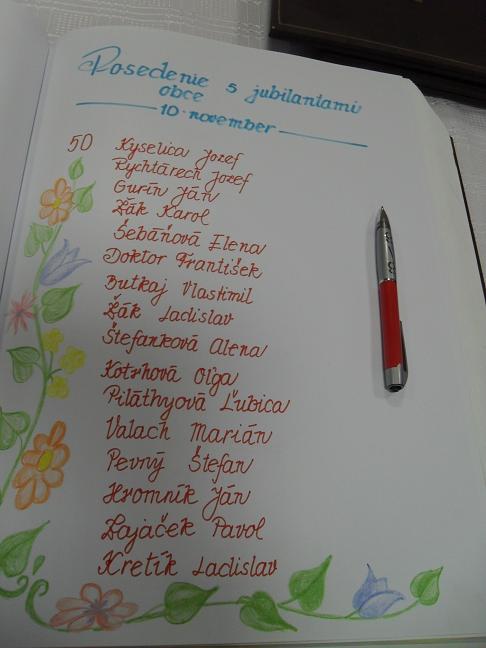 Posedenie s jubilantami
obce
10. november
50 Kyselica Jozef
Rychtárech Jozef
Gurín Ján
Žák Karol
Šebáňová Elena
Doktor František
Butkaj Vlastimil
Žák Ladislav
Štefanková Alena
Kotrhová Oľga
Piláthyová Ľubica
Valach Marián
Pevný Štefan
Hromník Ján
Lajaček Pavol
Kretík Ladislav